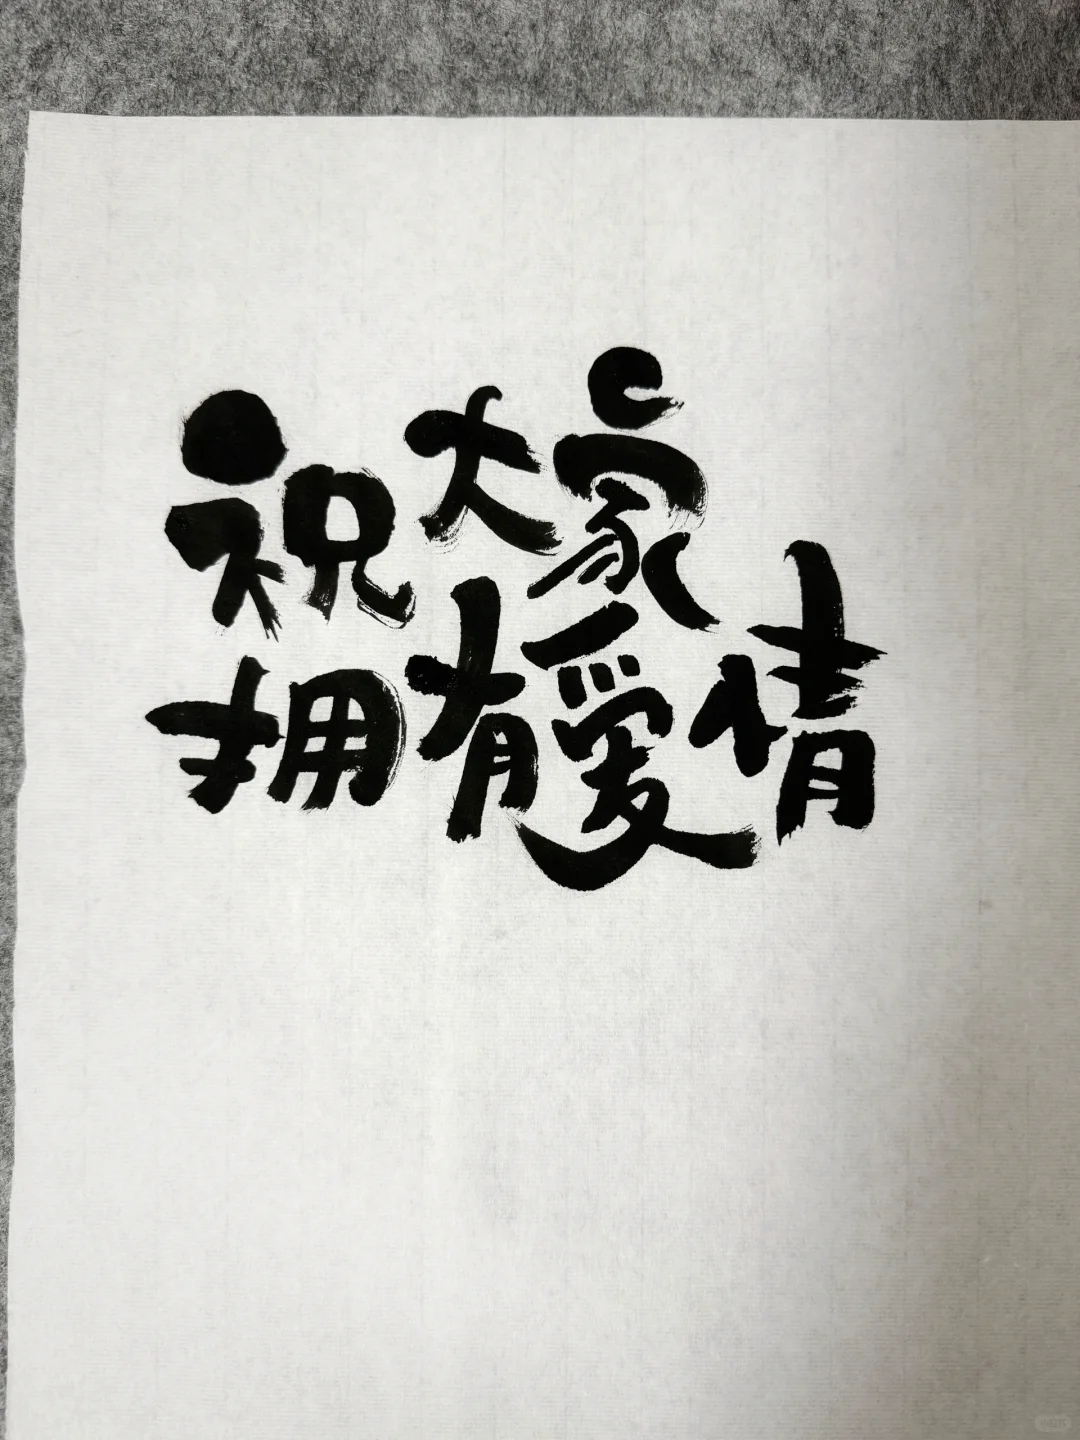 祝大家
拥有愛情